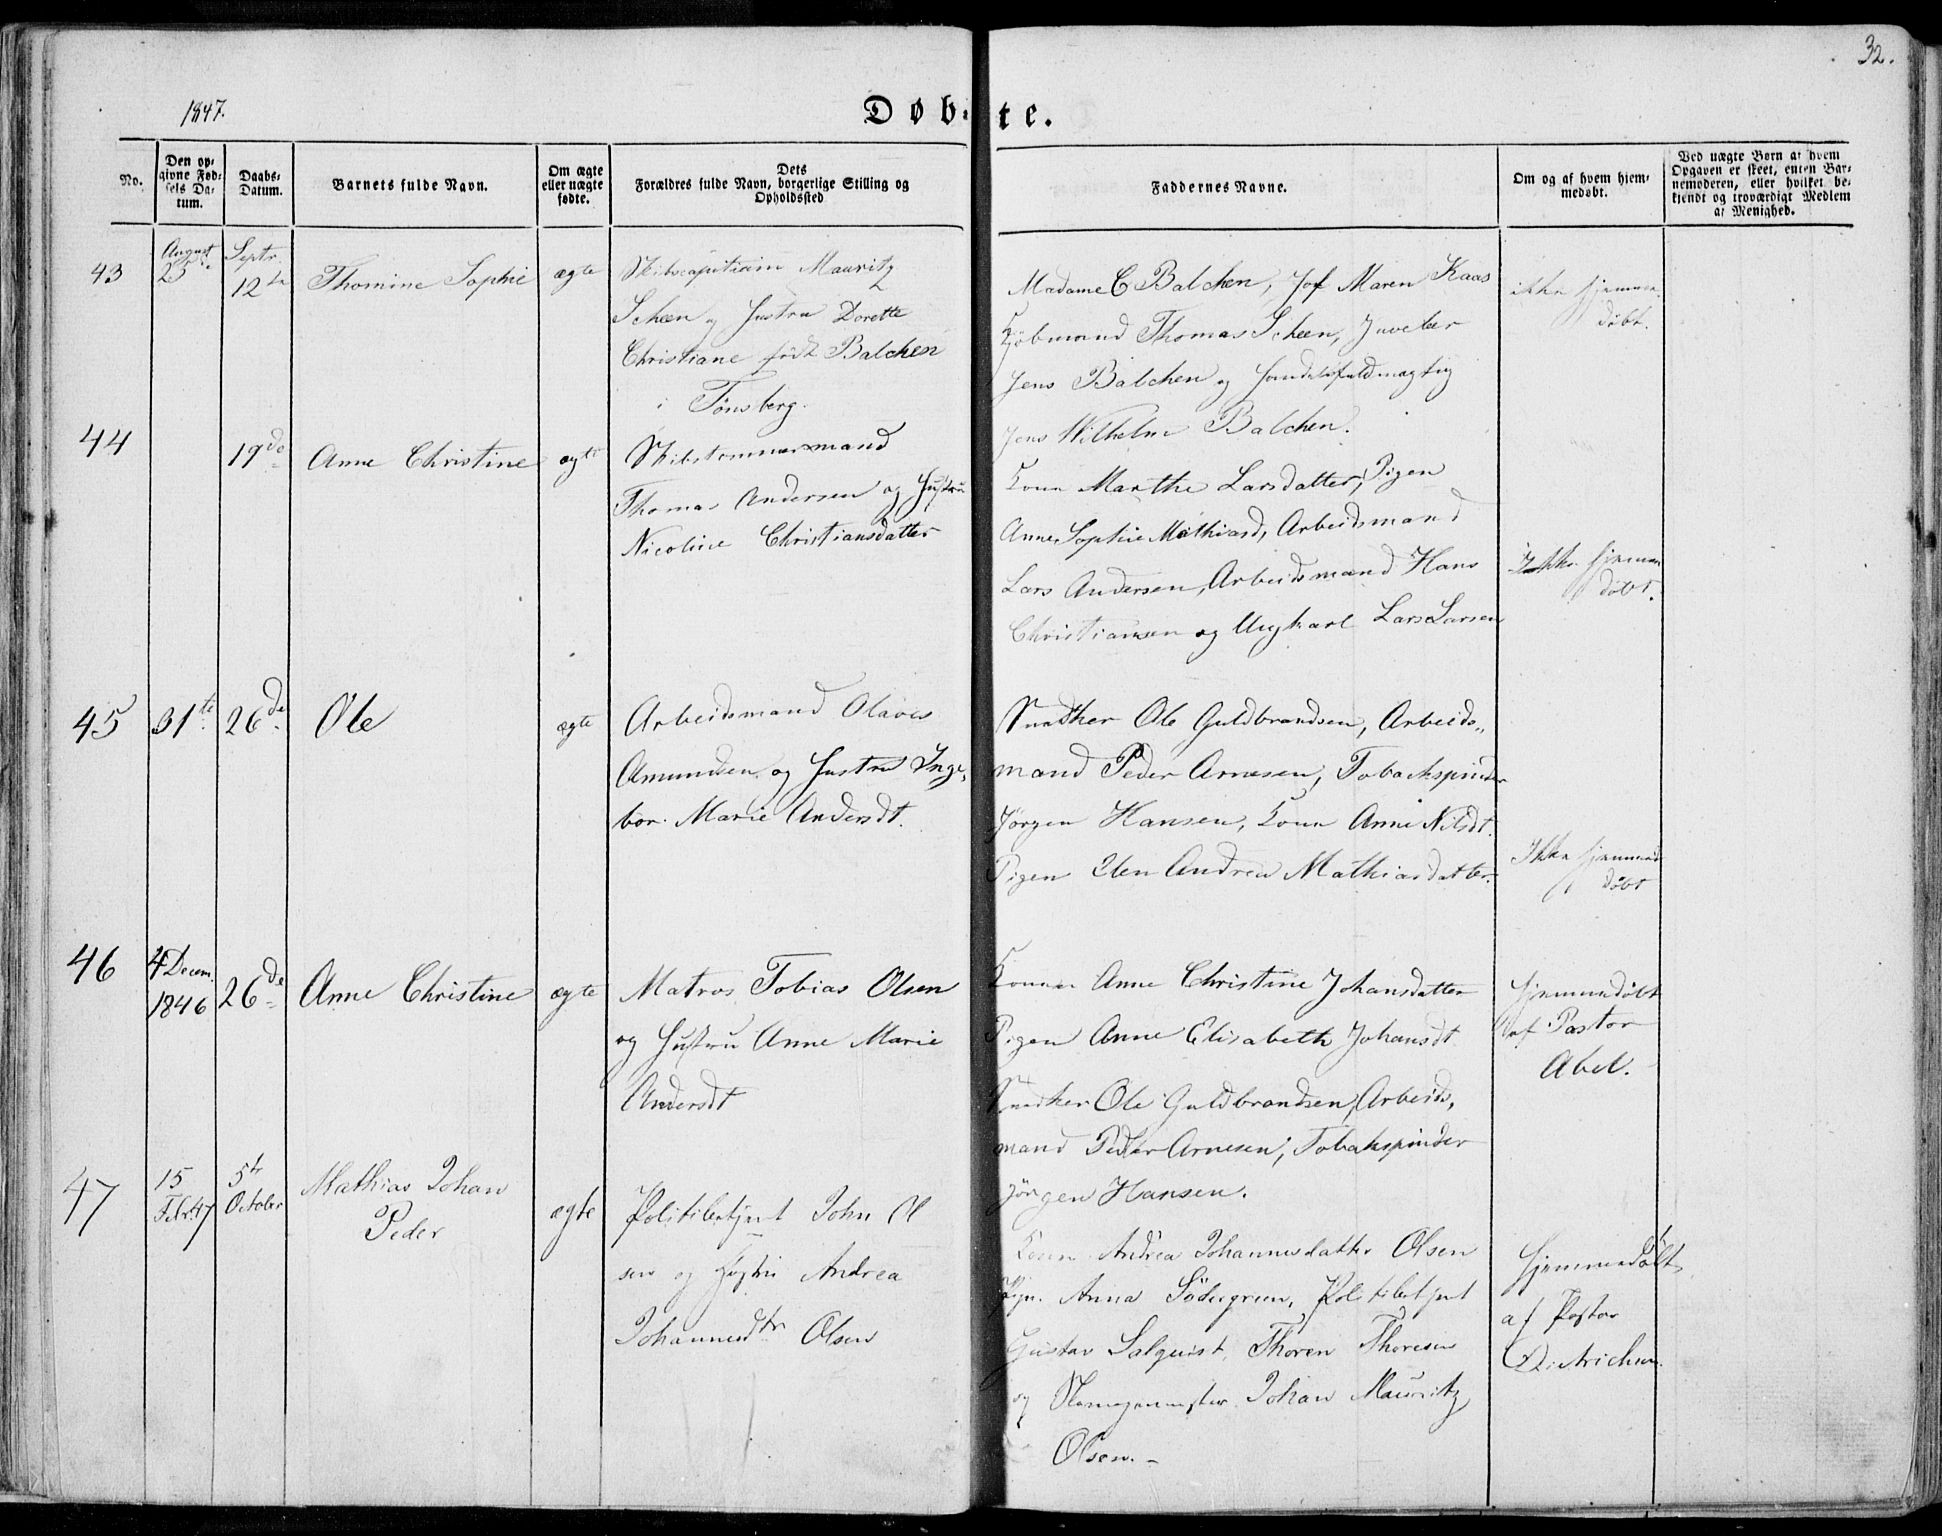 32.
1847.
Døb-te.
No.
Den op-
givne Fød-
sels Da-
tum.
Daabs-
Datum.
Barnets fulde Navn.
Om ægte
eller uægte
fødte.
Dets
Forældres fulde Navn, borgerlige Stilling og
Opholdssted
Faddernes Navne.
Om og af hvem hjem-
medøbt.
Ved uægte Børn af hvem
Opgaven er skeet, enten Bar-
nemoderen, eller hvilket be-
kjendt og troværdigt Medlem
af Menighed.
43
August
25
Septr.
12te
Thomine Sophie
ægte
Skibscapitain Mauritz
Scheen og Hustru Dorette
Christiane født Balchen
i Tønsberg.
Madame C Balchen, Jof Maren Kaas
Kjöbmand Thomas Scheen, Juveler
Jens Balchen og Handelsfuldmægtig
Jens Wilhelm Balchen.
ikke hjemme
døbt.
44
19de
Anne Christine
ægte
Skibstømmermand
Thomas Andersen og Hustru
Nicoline Christiansdatter
Kone Marthe Larsdatter, Pigen
Anne Sophie Mathiasd, Arbeidsmand
Lars Andersen, Arbeidsmand Hans
Christiansen og Ungkarl Lars Larsen
Ikke hjemme
døbt.
45
31te
26de
Ole
ægte
Arbeidsmand Olaves
Amundsen og Hustru Inge-
bor. Marie Andersdt.
Snedker Ole Guldbrandsen, Arbeids-
mand Peder Arnesen, Tobackspinder
Jörgen Hansen, Kone Anne Nilsdt.
Pigen Ellen Andrea Mathiasdatter.
Ikke hjemme
døbt
46
4 Decem.
1846
26de
Anne Christine
ægte
Matros Tobias Olsen
og Hustru Anne Marie
Andersdt
Konen Anne Christine Johansdatter
Pigen Anne Elisabeth Johansdt
Snedker Ole Guldbrandsen, Arbeids-
mand Peder Arnesen, Tobakspinder
Jörgen Hansen.
Hjemmedöbt
af Pastor
Abel.
47
15
Febr. 47
5te
October
Mathias Johan
Peder
ægte
Politibetjent John Ol
sen og Hustru Andrea
Johannesdtr Olsen
Kone Andrea Johannesdatter Olsen
Pign. Anna Södergreen, Politibetjent
Gustav Salquist, Thoren Thoresen
og Johan Mauritz
Olsen.-
Hjemmedöbt
af Pastor
Ditrichsen.